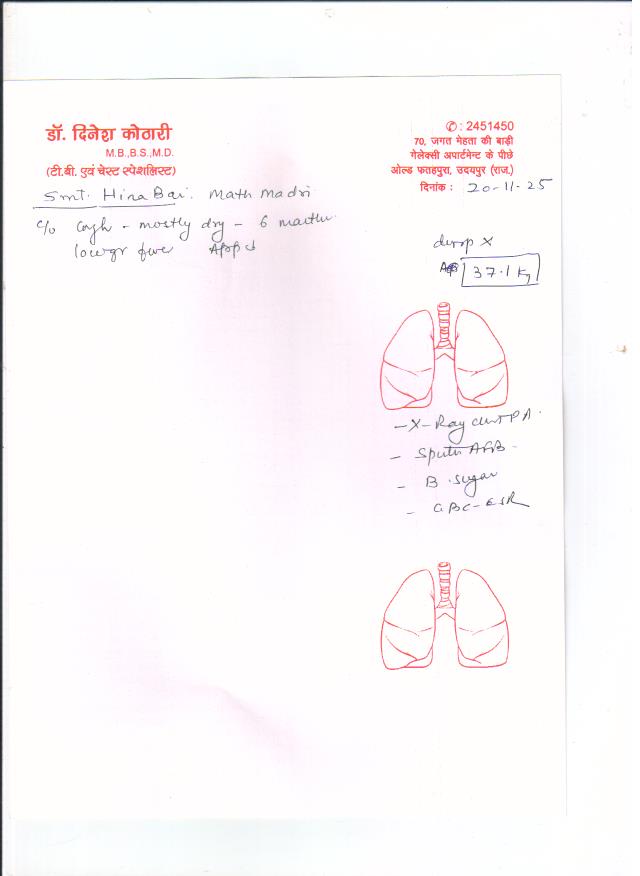 डॉ. दिनेश कोठारी
M.B.,B.S.,M.D.
(टी.बी. एवं चेस्ट स्पेशलिस्ट)
✆: 2451450
70, जगत मेहता की बाड़ी
गेलेक्सी अपार्टमेन्ट के पीछे
ओल्ड फतहपुरा, उदयपुर (राज.)
दिनांक : 20-11-25
Smt. Hira Bai. Math Madri
c/o Cough - mostly dry - 6 months
lowgr fever App ↓
37.1 kg
- X-Ray chest PA.
- Sputum AFB -
- B. Sugar
- CBC - ESR